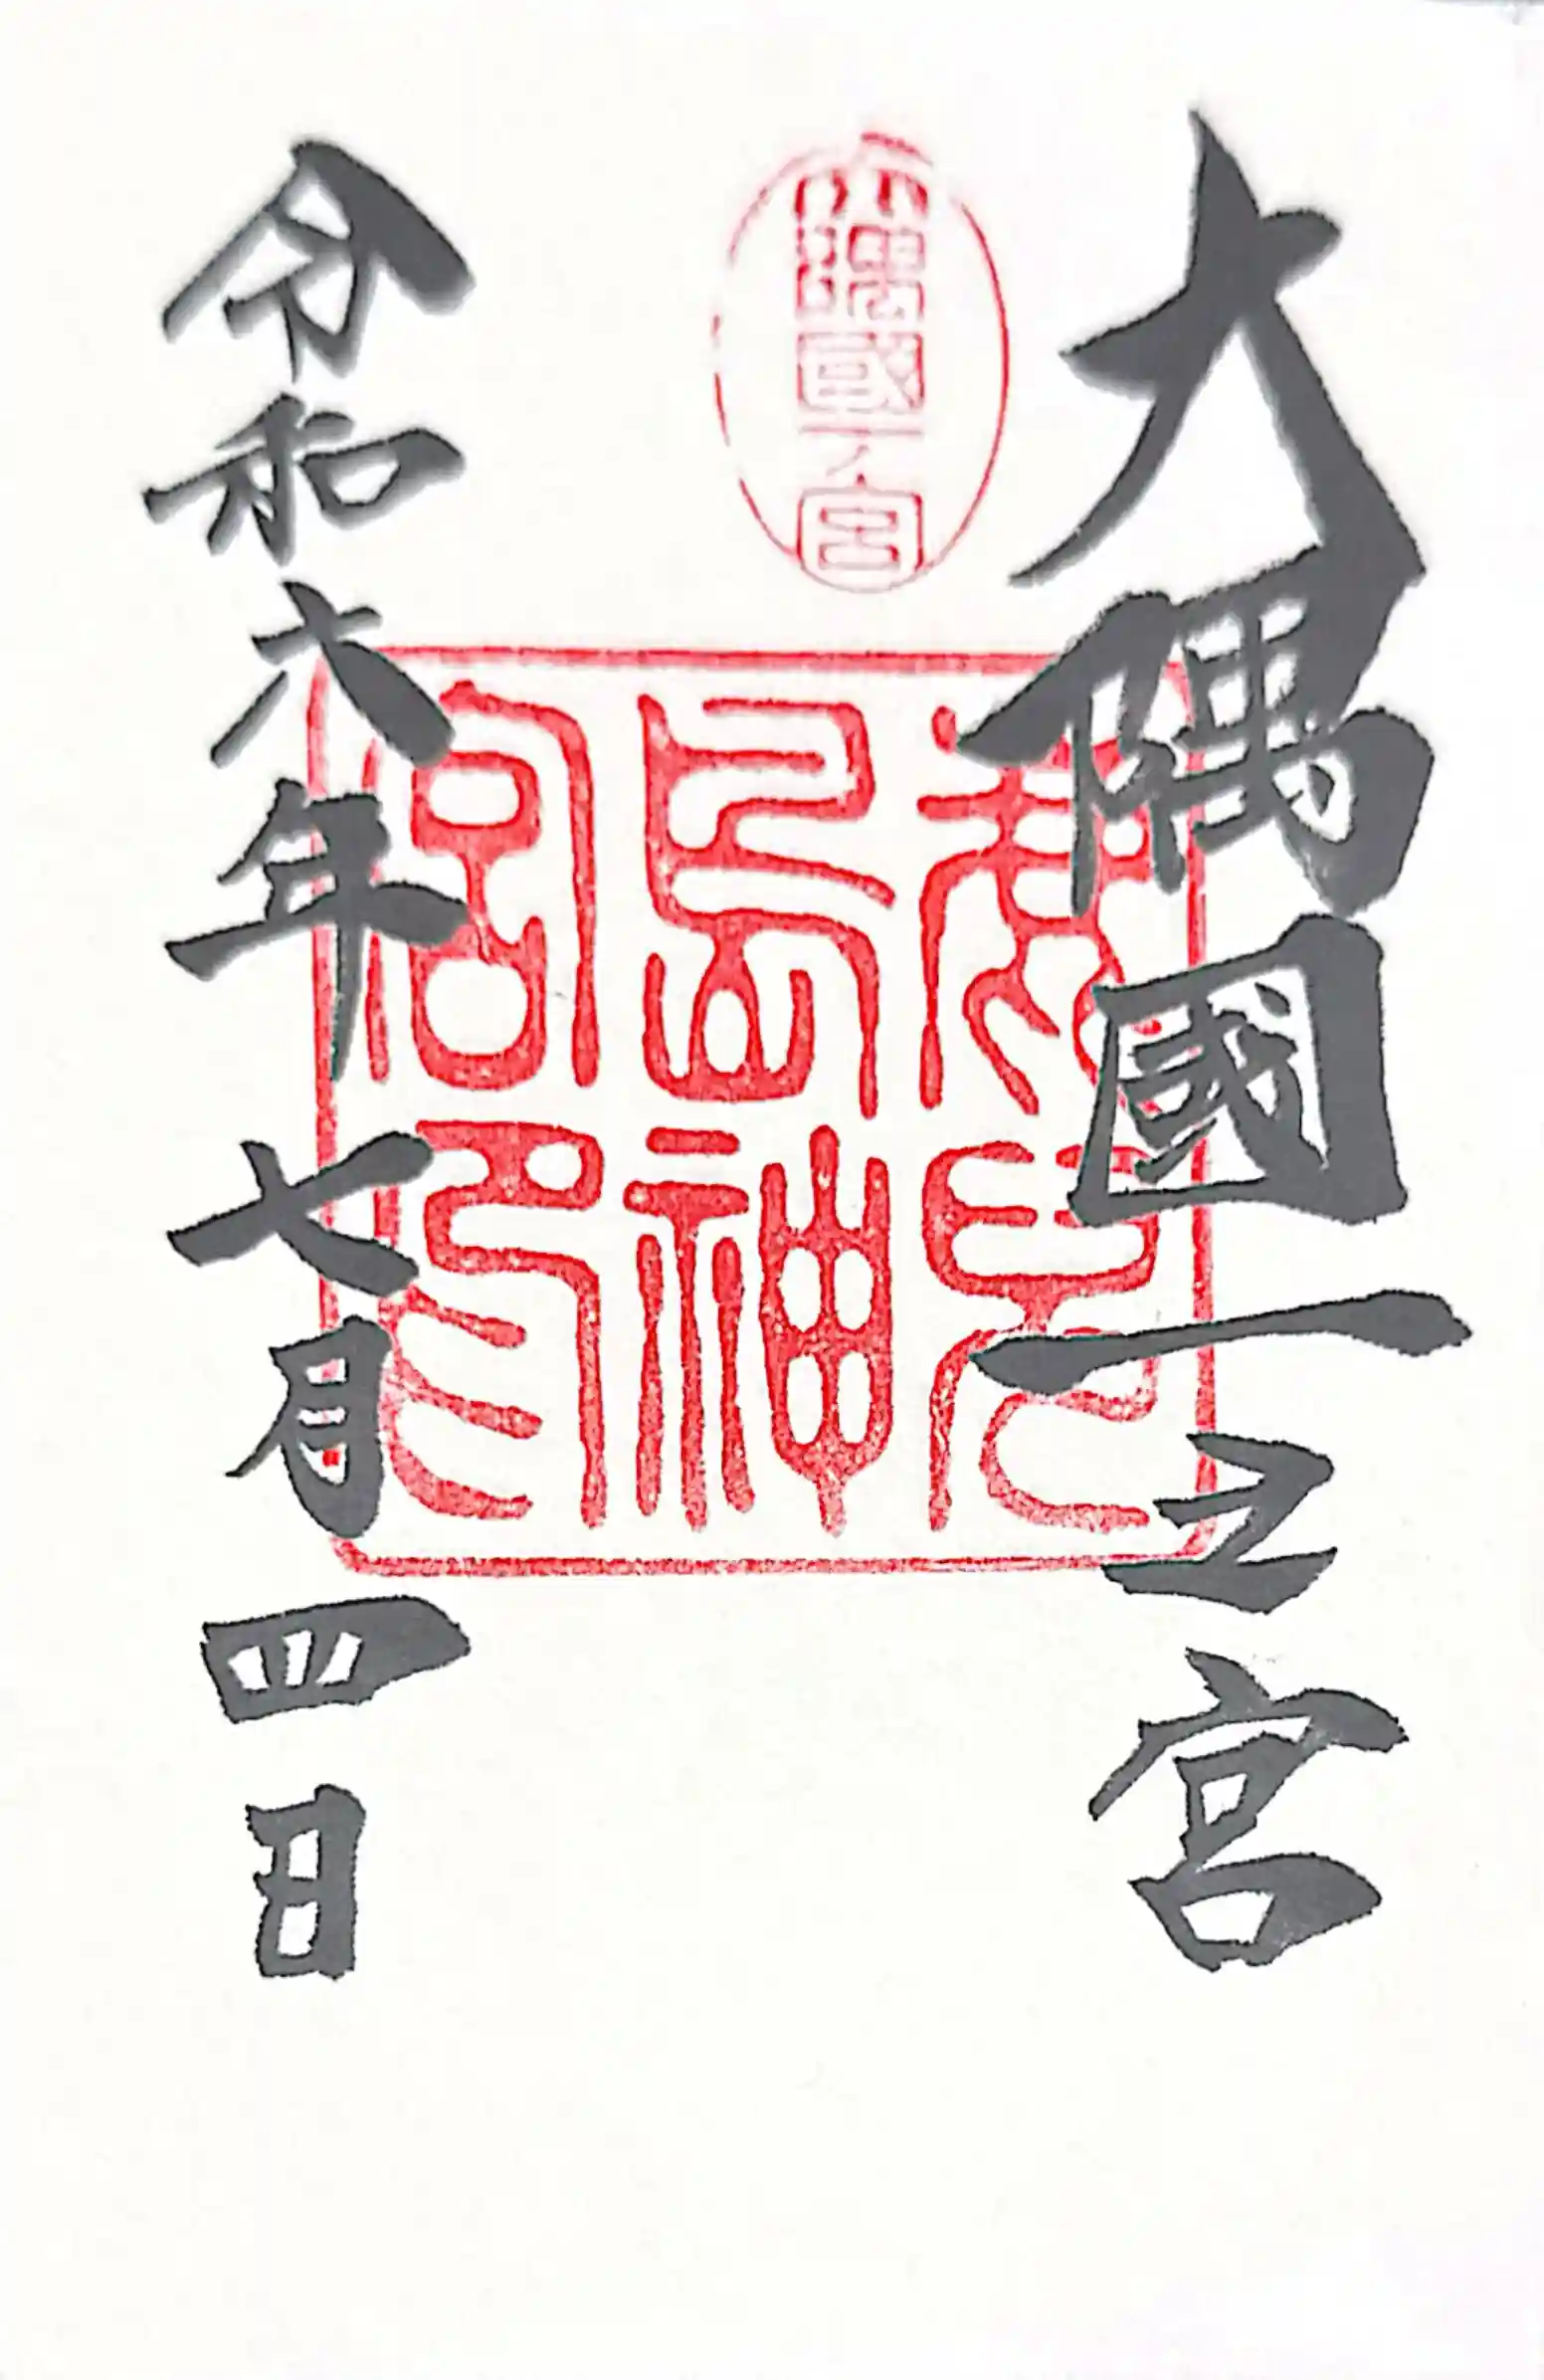 大隅國一之宮
大隅國一宮
鹿兒
島神
宮印
令和六年七月四日